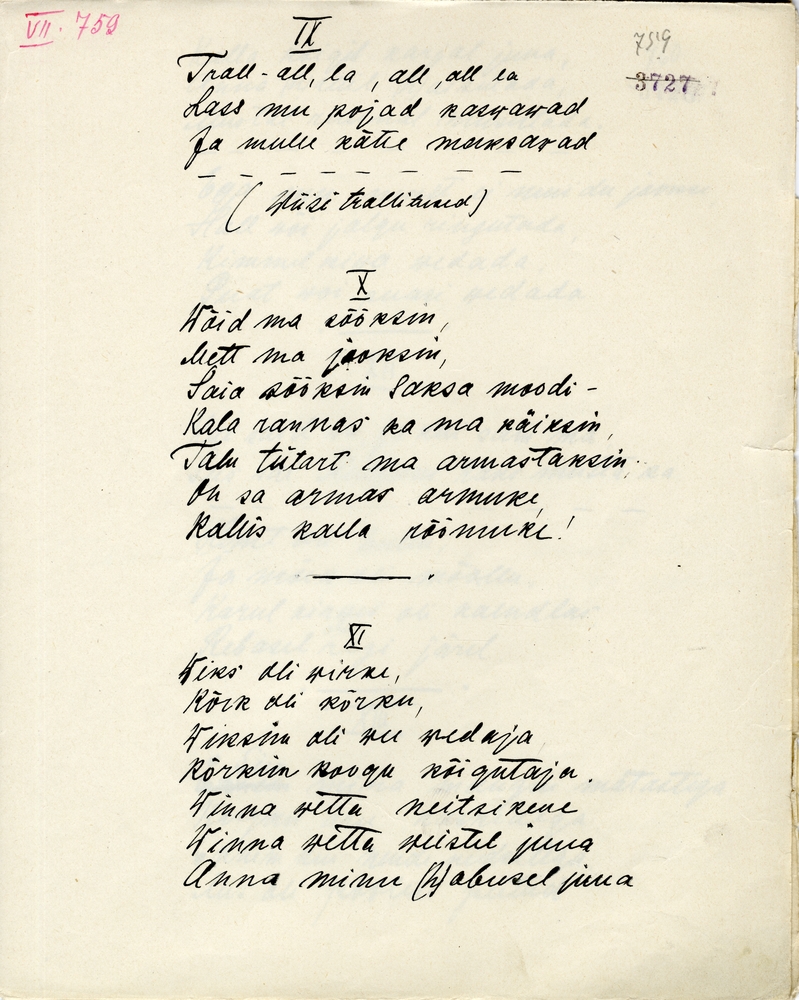 VII. 759
759
3727
IX
Trall-all, la, all, all la
Lass mu pojad kaswawad
Ja mulle kätte maksavad
(Wiisi trallitused)
X
Wõid ma sööksin,
Mett ma jooksin,
Saia sööksin Saksa moodi -
Kala rannas ka ma käiksin,
Talu tütart ma armastaksin,
Oh sa armas armuke,
Kallis kalla rõõmuke!
XI
Wiks oli wirke,
Kõrk oli kõrku,
Wiksim oli wee wedaja,
Kõrkim koogu kõigutaja.
Winna wetta neitsikene
Winna wetta weistel juua
Anna minu (h)obusel juua